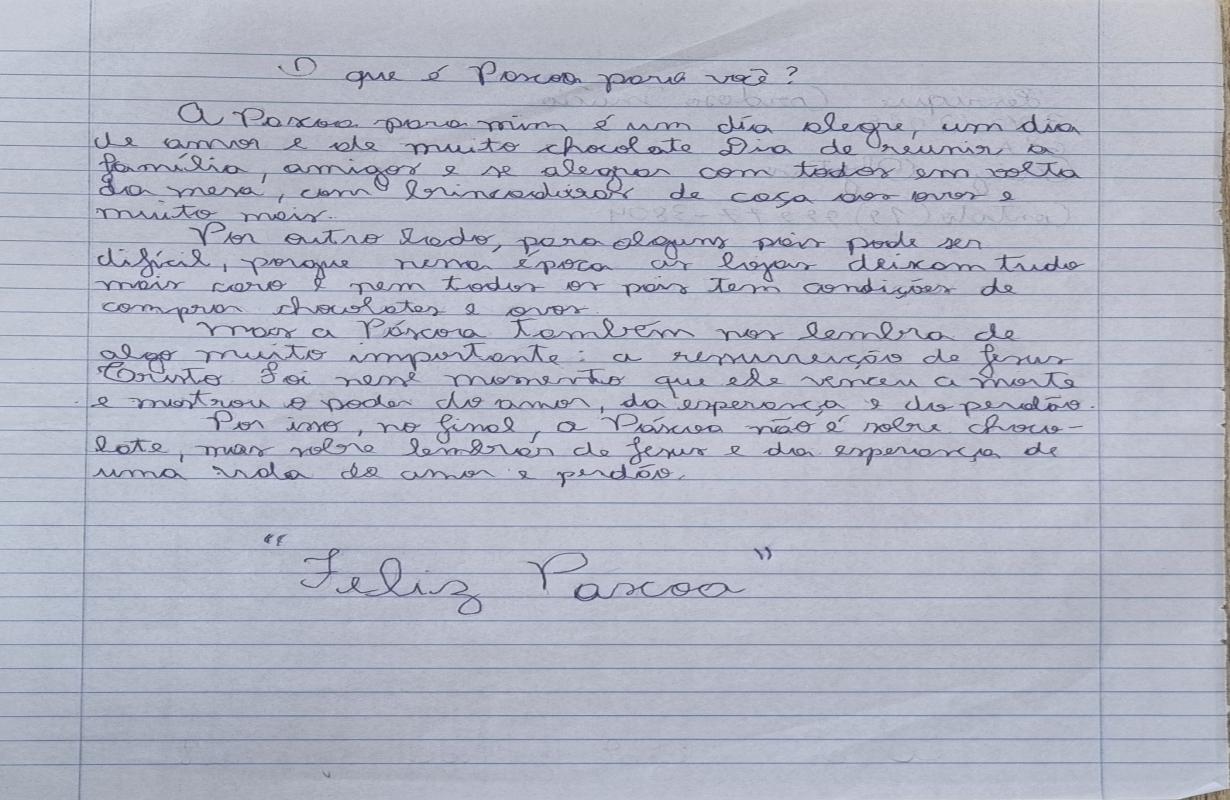 O que é Pascoa para você?
A Pascoa para mim é um dia alegre, um dia
de amor e de muito chocolate Dia de reunir a
família, amigos e se alegrar com todos em volta
da mesa, com brincadeiras de caça aos ovos e
muito mais.
Por outro lado, para alguns pais pode ser
difícil, porque nessa época as lojas deixam tudo
mais caro e nem todos os pais tem condições de
comprar chocolates e ovos.
Mas a Páscoa também nos lembra de
algo muito importante: a ressurreição de Jesus
Cristo Foi nesse momento que ele venceu a morte
e mostrou o poder do amor, da esperança e do perdão.
Por isso, no final, a Páscoa não é sobre choco-
late, mas sobre lembrar de Jesus e da esperança de
uma vida de amor e perdão.
"Feliz Páscoa"